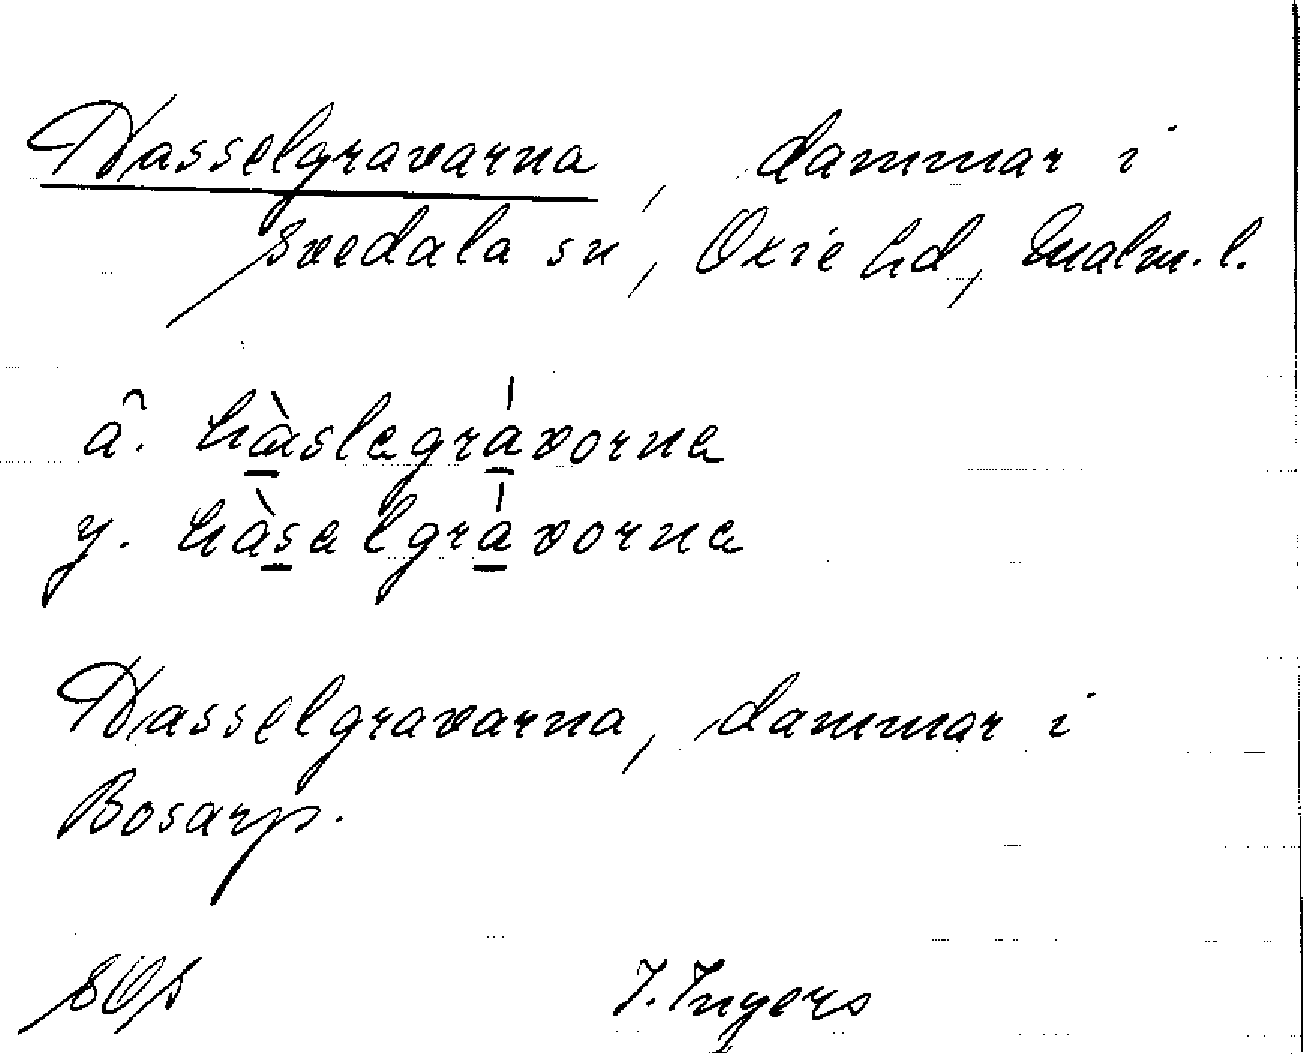 Hasselgravarna, dammar i
Svedala sn, Oxie hd, Malm. l.
â. hàslegrávorna
y. hàselgrávorna
Hasselgravarna, dammar i
Bosarp.
SOS
I. Ingers